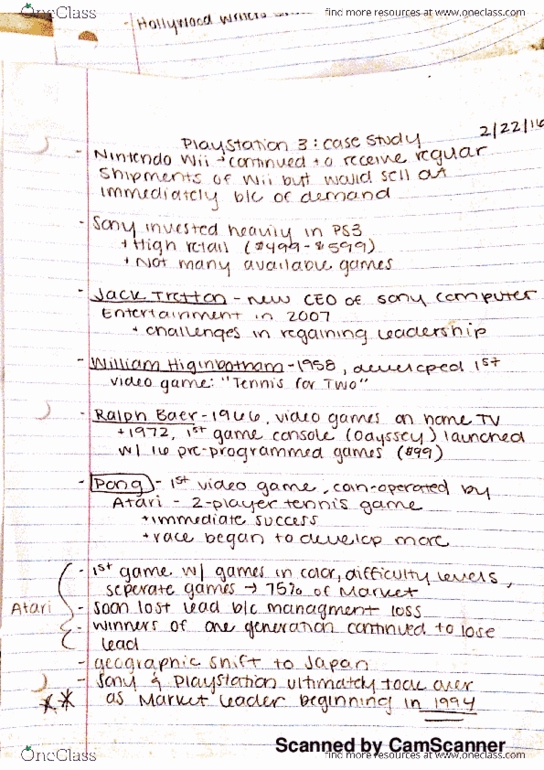 OneClass
find more resources at www.oneclass.com
- Hollywood writers
2/22/16
PlayStation 3: case study
- Nintendo Wii → continued to receive reguar
shipments of Wii but would sell out
immediately b/c of demand
- Sony invested heavily in PS3
+ High retail ($499-$599)
+ Not many available games
- Jack Tretton - new CEO of Sony Computer
Entertainment in 2007
+ challenges in regaining leadership
- William Higinbotham - 1958, developed 1st
video game: "Tennis for Two"
- Ralph Baer - 1966, video games on home TV
+ 1972, 1st game console (Odyssey) launched
w/ 16 pre-programmed games ($99)
- Pong - 1st video game, coin-operated by
Atari - 2-player tennis game
+ immediate success
+ race began to develop more
- 1st game w/ games in color, difficulty levels,
seperate games → 75% of Market
Atari - soon lost lead b/c managment loss
- winners of one generation continued to lose
lead
- geographic shift to Japan
- Sony & Playstation ultimatly took over
** as Market leader beginning in 1994
Scanned by CamScanner
OneClass
find more resources at www.oneclass.com